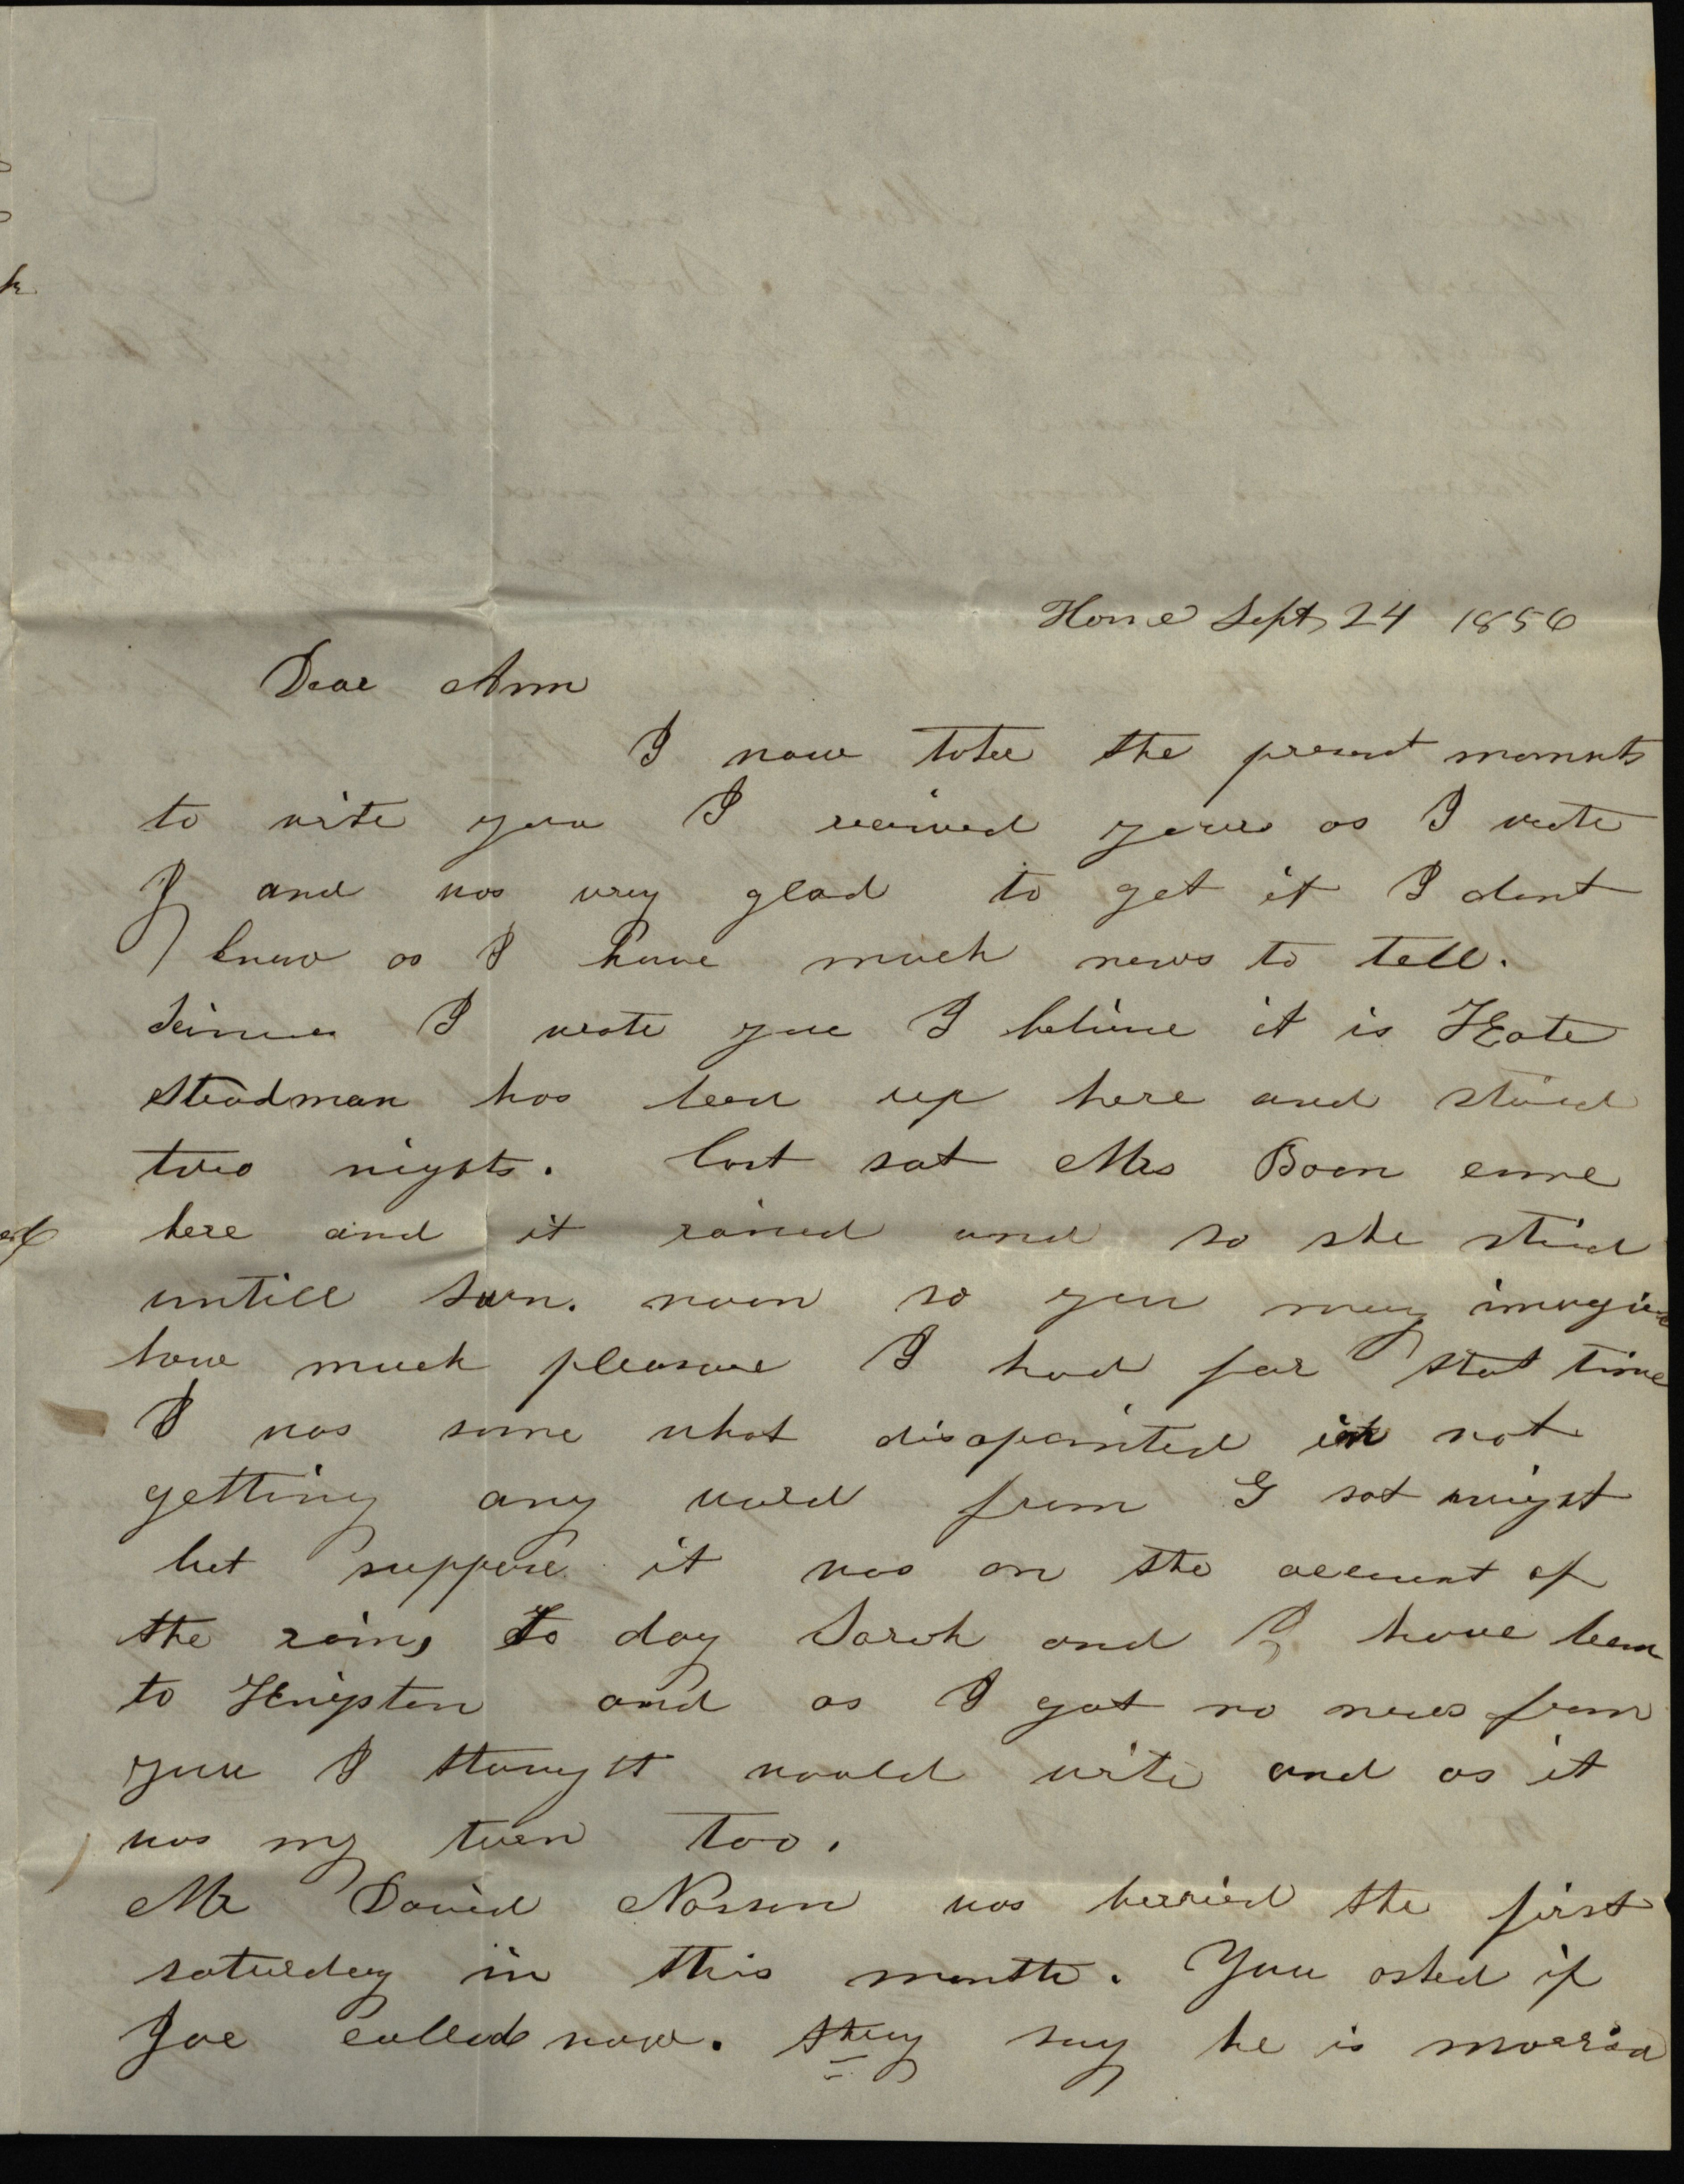 Home Sept 24 1856
Dear Ann
I now take the present moments
to write you I received yours as I wrote
I and was very glad to get it I dont
know as I have much news to tell.
Since I wrote you I believe it is Kate
Steadman has been up here and staid
two nights. last sat Mrs Boon came
here and it rained and so she staid
untill sun. noon so you may imagine
how much pleasure I had for that time
I was some what disapointed in not
getting any word from G sat night
but suppose it was on the account of
the rain, To day Sarah and I have been
to Kingston and as I got no news from
you I thought would write and as it
was my turn too.
Mr David Nasson was berried the first
saturday in this month. You asked if
Joe called now. they say he is married